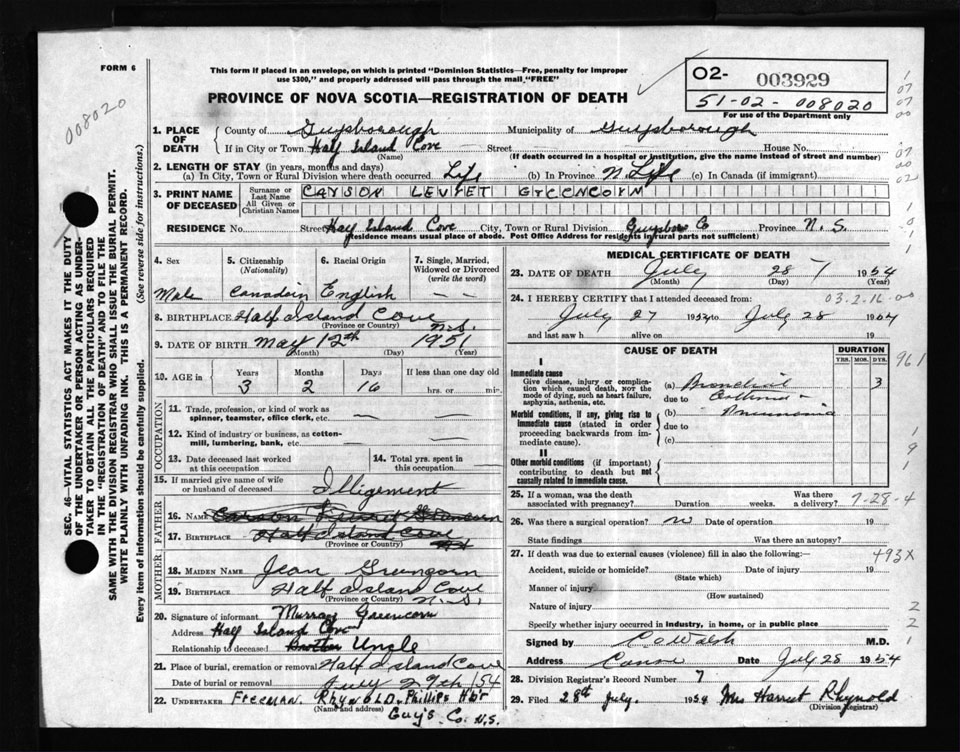 FORM 6
008020
This form if placed in an envelope, on which is printed "Dominion Statistics—Free, penalty for improper
use $300," and properly addressed will pass through the mail "FREE"
PROVINCE OF NOVA SCOTIA—REGISTRATION OF DEATH
02- 003929
51-02-008020
For use of the Department only
1. PLACE OF DEATH
County of Guysborough Municipality of Guysborough
If in City or Town Half Island Cove Street House No.
(Name) (If death occurred in a hospital or institution, give the name instead of street and number)
2. LENGTH OF STAY (in years, months and days)
(a) In City, Town or Rural Division where death occurred Life (b) In Province Life (c) In Canada (if immigrant)
3. PRINT NAME OF DECEASED
Surname or Last Name
All Given or Christian Names
RESIDENCE No. Street Half Island Cove City, Town or Rural Division Guysboro Co Province N.S.
(Residence means usual place of abode. Post Office Address for residents in rural parts not sufficient)
4. Sex
Male
5. Citizenship (Nationality)
Canadain
6. Racial Origin
English
7. Single, Married, Widowed or Divorced (write the word)
— —
8. BIRTHPLACE Half Island Cove N.S.
(Province or Country)
9. DATE OF BIRTH May 12th 1951
(Month) (Day) (Year)
10. AGE in
Years Months Days If less than one day old
3 2 16 hrs. or min.
OCCUPATION
11. Trade, profession, or kind of work as spinner, teamster, office clerk, etc.
12. Kind of industry or business, as cotton-mill, lumbering, bank, etc.
13. Date deceased last worked at this occupation
14. Total yrs. spent in this occupation
15. If married give name of wife or husband of deceased
FATHER
16. NAME
17. Birthplace Half Island Cove
(Province or Country)
MOTHER
18. MAIDEN NAME Jean
19. BIRTHPLACE Half Island Cove
(Province or Country) N.S.
20. Signature of informant Murray Greencorn
Address Half Island Cove
Relationship to deceased Brother Uncle
21. Place of burial, cremation or removal Half Island Cove
Date of burial or removal July 29th/54
22. UNDERTAKER FREEMAN. RHYNOLD. Phillips Hb'r
(Name and address) Guy's. Co. N.S.
MEDICAL CERTIFICATE OF DEATH
23. DATE OF DEATH July 28 1954
(Month) (Day) (Year)
24. I HEREBY CERTIFY that I attended deceased from: 03-2-16-00
July 27 1954 to July 28 1954
and last saw h alive on 19
CAUSE OF DEATH
DURATION
YRS. MOS. DYS.
I
Immediate cause
Give disease, injury or complication which caused death, NOT the mode of dying, such as heart failure, asphyxia, asthenia, etc.
(a) Bronchial 3
due to Asthma -
Morbid conditions, if any, giving rise to immediate cause (stated in order proceeding backwards from immediate cause).
(b) Pneumonia
due to
(c)
II
Other morbid conditions (if important) contributing to death but not causally related to immediate cause.
25. If a woman, was the death associated with pregnancy? Duration weeks. Was there a delivery? 7-28-4
26. Was there a surgical operation? no Date of operation 19
State findings Was there an autopsy?
27. If death was due to external causes (violence) fill in also the following:— 493X
Accident, suicide or homicide? Date of injury 19
(State which)
Manner of injury
(How sustained)
Nature of injury
Specify whether injury occurred in Industry, in home, or in public place
Signed by M.D.
Address Canso Date July 28 1954
28. Division Registrar's Record Number 7
29. Filed 28th July. 1954 Mrs Harriet Rhynold
(Division Registrar)
SEC. 46—VITAL STATISTICS ACT MAKES IT THE DUTY
OF THE UNDERTAKER OR PERSON ACTING AS UNDER-
TAKER TO OBTAIN ALL THE PARTICULARS REQUIRED
IN THE "REGISTRATION OF DEATH" AND TO FILE THE
SAME WITH THE DIVISION REGISTRAR WHO SHALL ISSUE THE BURIAL PERMIT.
WRITE PLAINLY WITH UNFADING INK. THIS IS A PERMANENT RECORD.
Every item of Information should be carefully supplied. (See reverse side for instructions.)
961